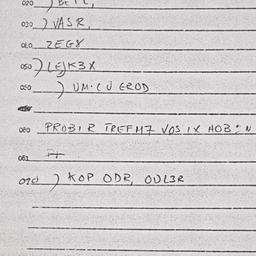 020 ) BETL,
030 ) VASR,
040 ZEGY
050 ) LEJK3X
050 ) UM·CU EROD
080 PROBIR TREFM7 VOS IX HOB:N
081
090 ) KOP ODR, OUL3R